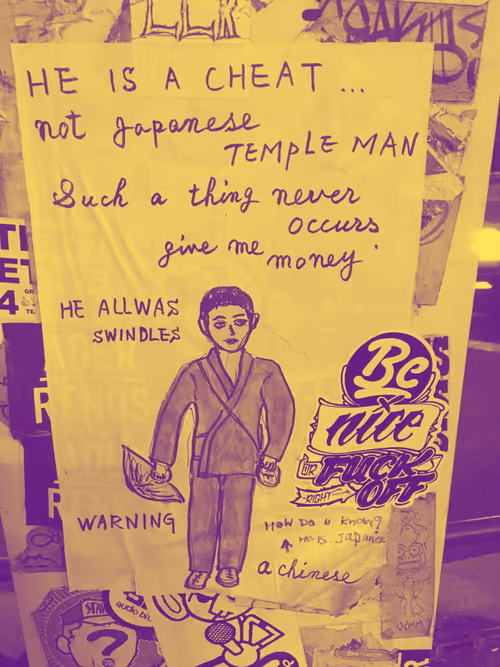 HE IS A CHEAT ...
not Japanese
TEMPLE MAN
Such a thing never
occurs
give me money
HE ALLWAS
SWINDLES
Be
nice
OR FUCK
RIGHT OFF
WARNING
HOW DO U KNOW?
HE IS JAPANESE
a chinese